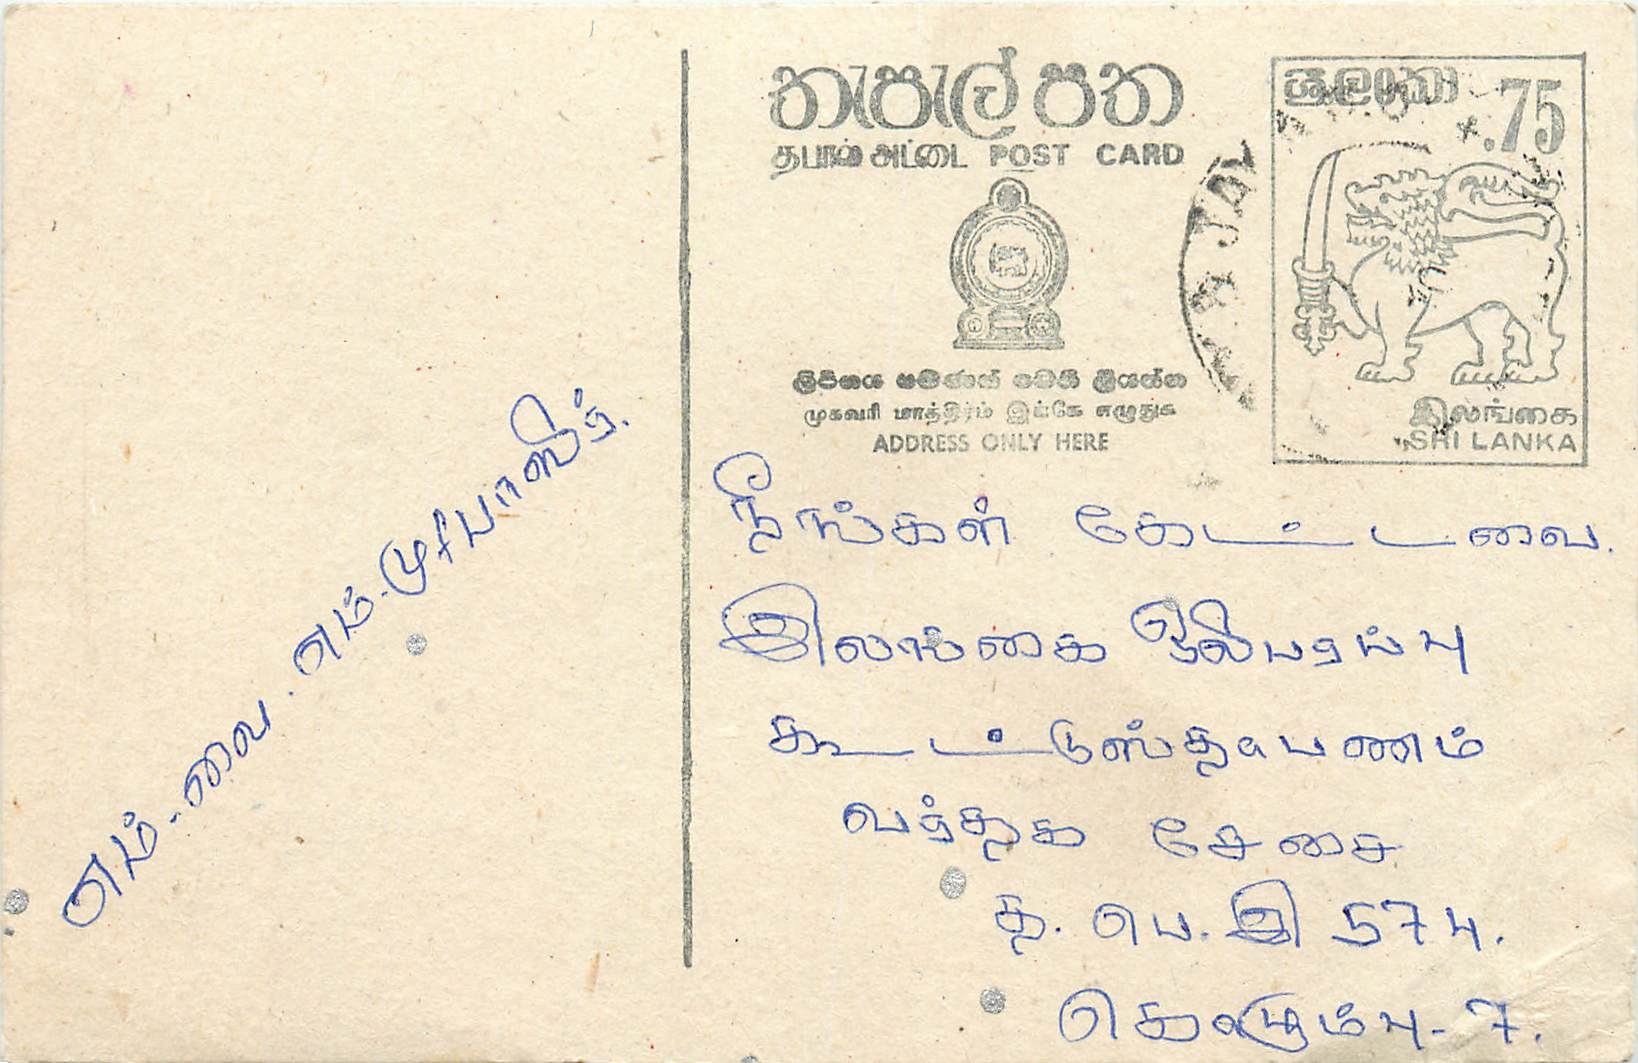 තැපැල් පත
தபால் அட்டை POST CARD
ශ්‍රී ලංකා
.75
இலங்கை
SRI LANKA
JAY
முகவரி மாத்திரம் இங்கே எழுதுக
ADDRESS ONLY HERE
நீங்கள் கேட்டவை.
இலங்கை ஒலிபரப்பு
கூட்டுஸ்தாபணம்
வர்த்தக சேசை
த. பெ. இ 574.
கொழும்பு - 7.
எம் - வை. எம் -